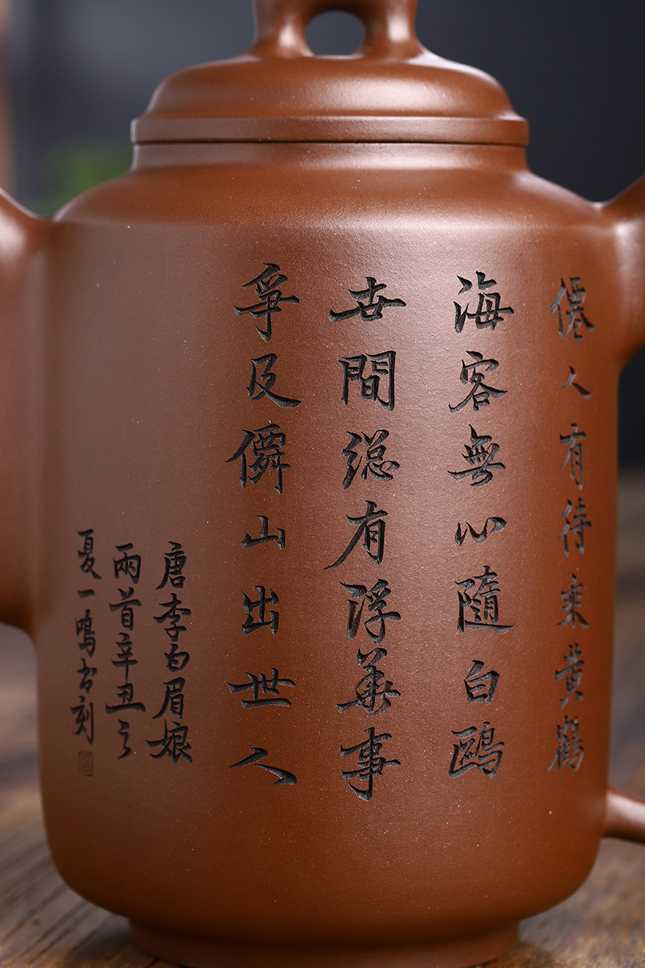 僊人有待乘黄鶴
海客無心隨白鷗
世間緫有浮華事
爭及僊山出世人
唐李白眉娘
兩首辛丑之
夏一鳴書刻